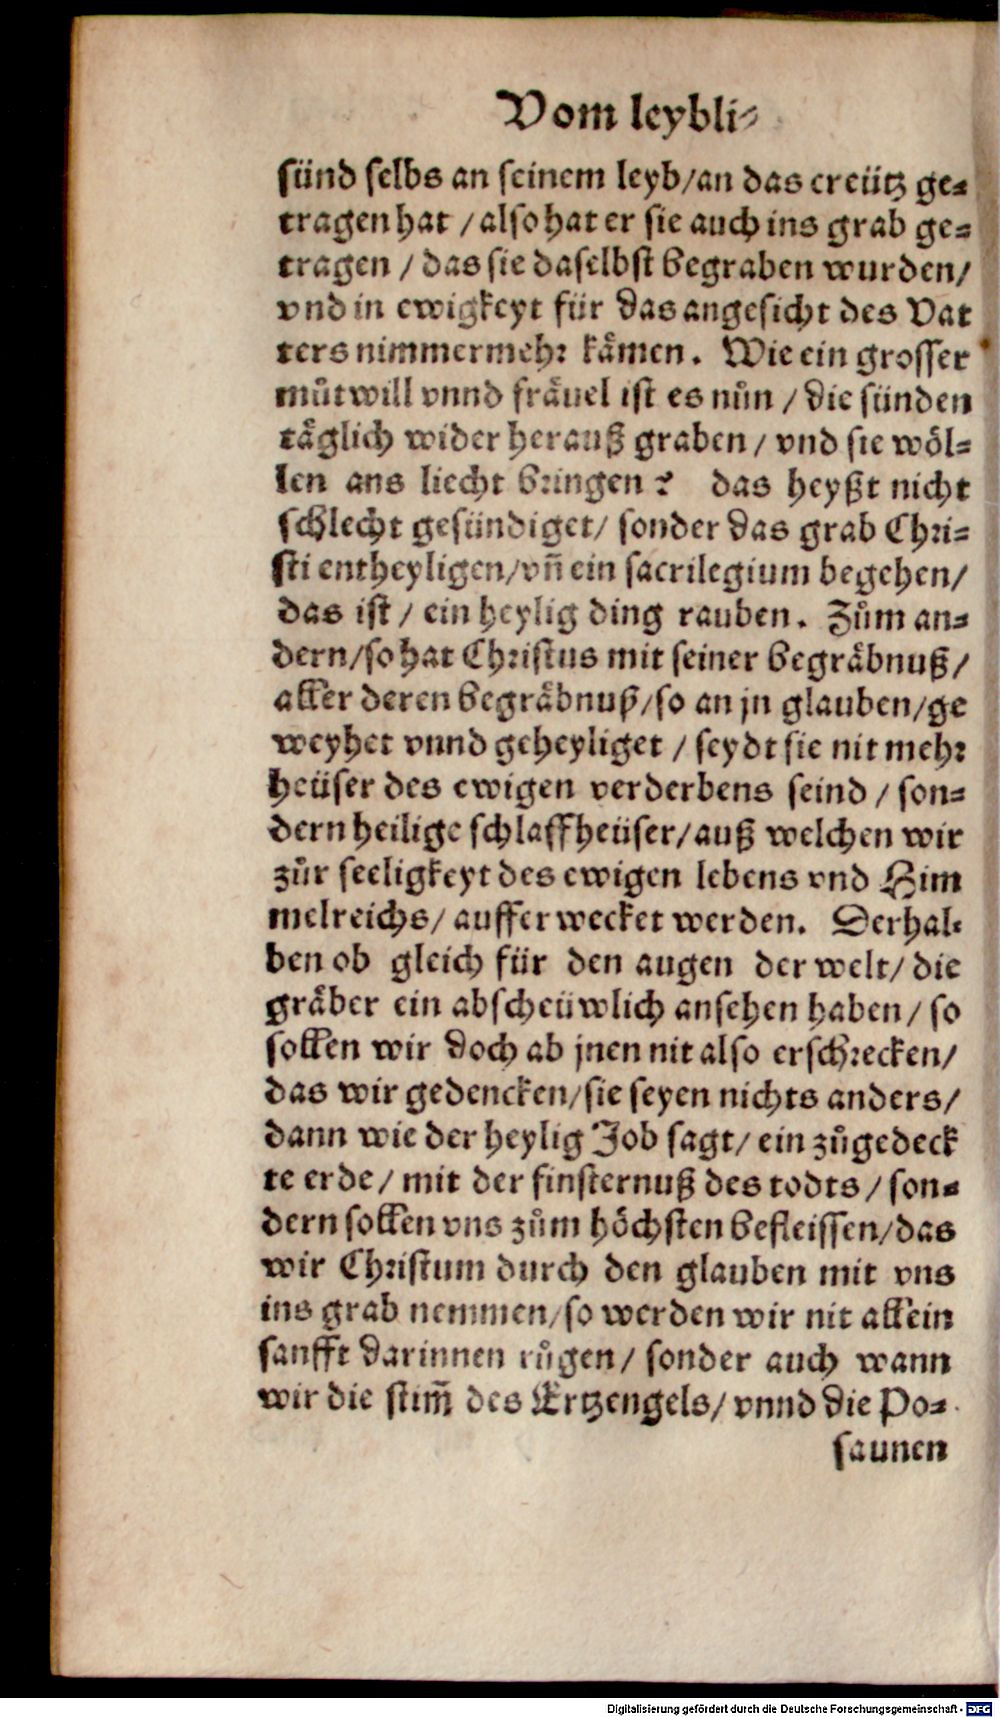 Vom leybli⸗
sünd selbs an seinem leyb/an das creütz ge⸗
tragen hat / also hat er sie auch ins grab ge⸗
tragen / das sie daselbst begraben wurden/
vnd in ewigkeyt für das angesicht des Vat
ters nimmermehr kämen. Wie ein grosser
můtwill vnnd fräuel ist es nůn / die sünden
täglich wider herauß graben / vnd sie wöl⸗
len ans liecht bringen? das heyßt nicht
schlecht gesündiget/ sonder das grab Chri⸗
sti entheyligen/vñ ein sacrilegium begehen/
das ist / ein heylig ding rauben. Zům an⸗
dern/so hat Christus mit seiner begräbnuß/
aller deren begräbnuß/so an jn glauben/ge
weyhet vnnd geheyliget / seydt sie nit mehr
heüser des ewigen verderbens seind / son⸗
dern heilige schlaffheüser/auß welchen wir
zůr seeligkeyt des ewigen lebens vnd Him
melreichs/ aufferwecket werden. Derhal⸗
ben ob gleich für den augen der welt/ die
gräber ein abscheüwlich ansehen haben / so
sollen wir doch ab jnen nit also erschrecken/
das wir gedencken/sie seyen nichts anders/
dann wie der heylig Job sagt/ ein zůgedeck
te erde / mit der finsternuß des todts / son⸗
dern sollen vns zům höchsten befleissen/das
wir Christum durch den glauben mit vns
ins grab nemmen/so werden wir nit allein
sanfft darinnen růgen / sonder auch wann
wir die stim̃ des Ertzengels/ vnnd die Po⸗
saunen
Digitalisierung gefördert durch die Deutsche Forschungsgemeinschaft - DFG